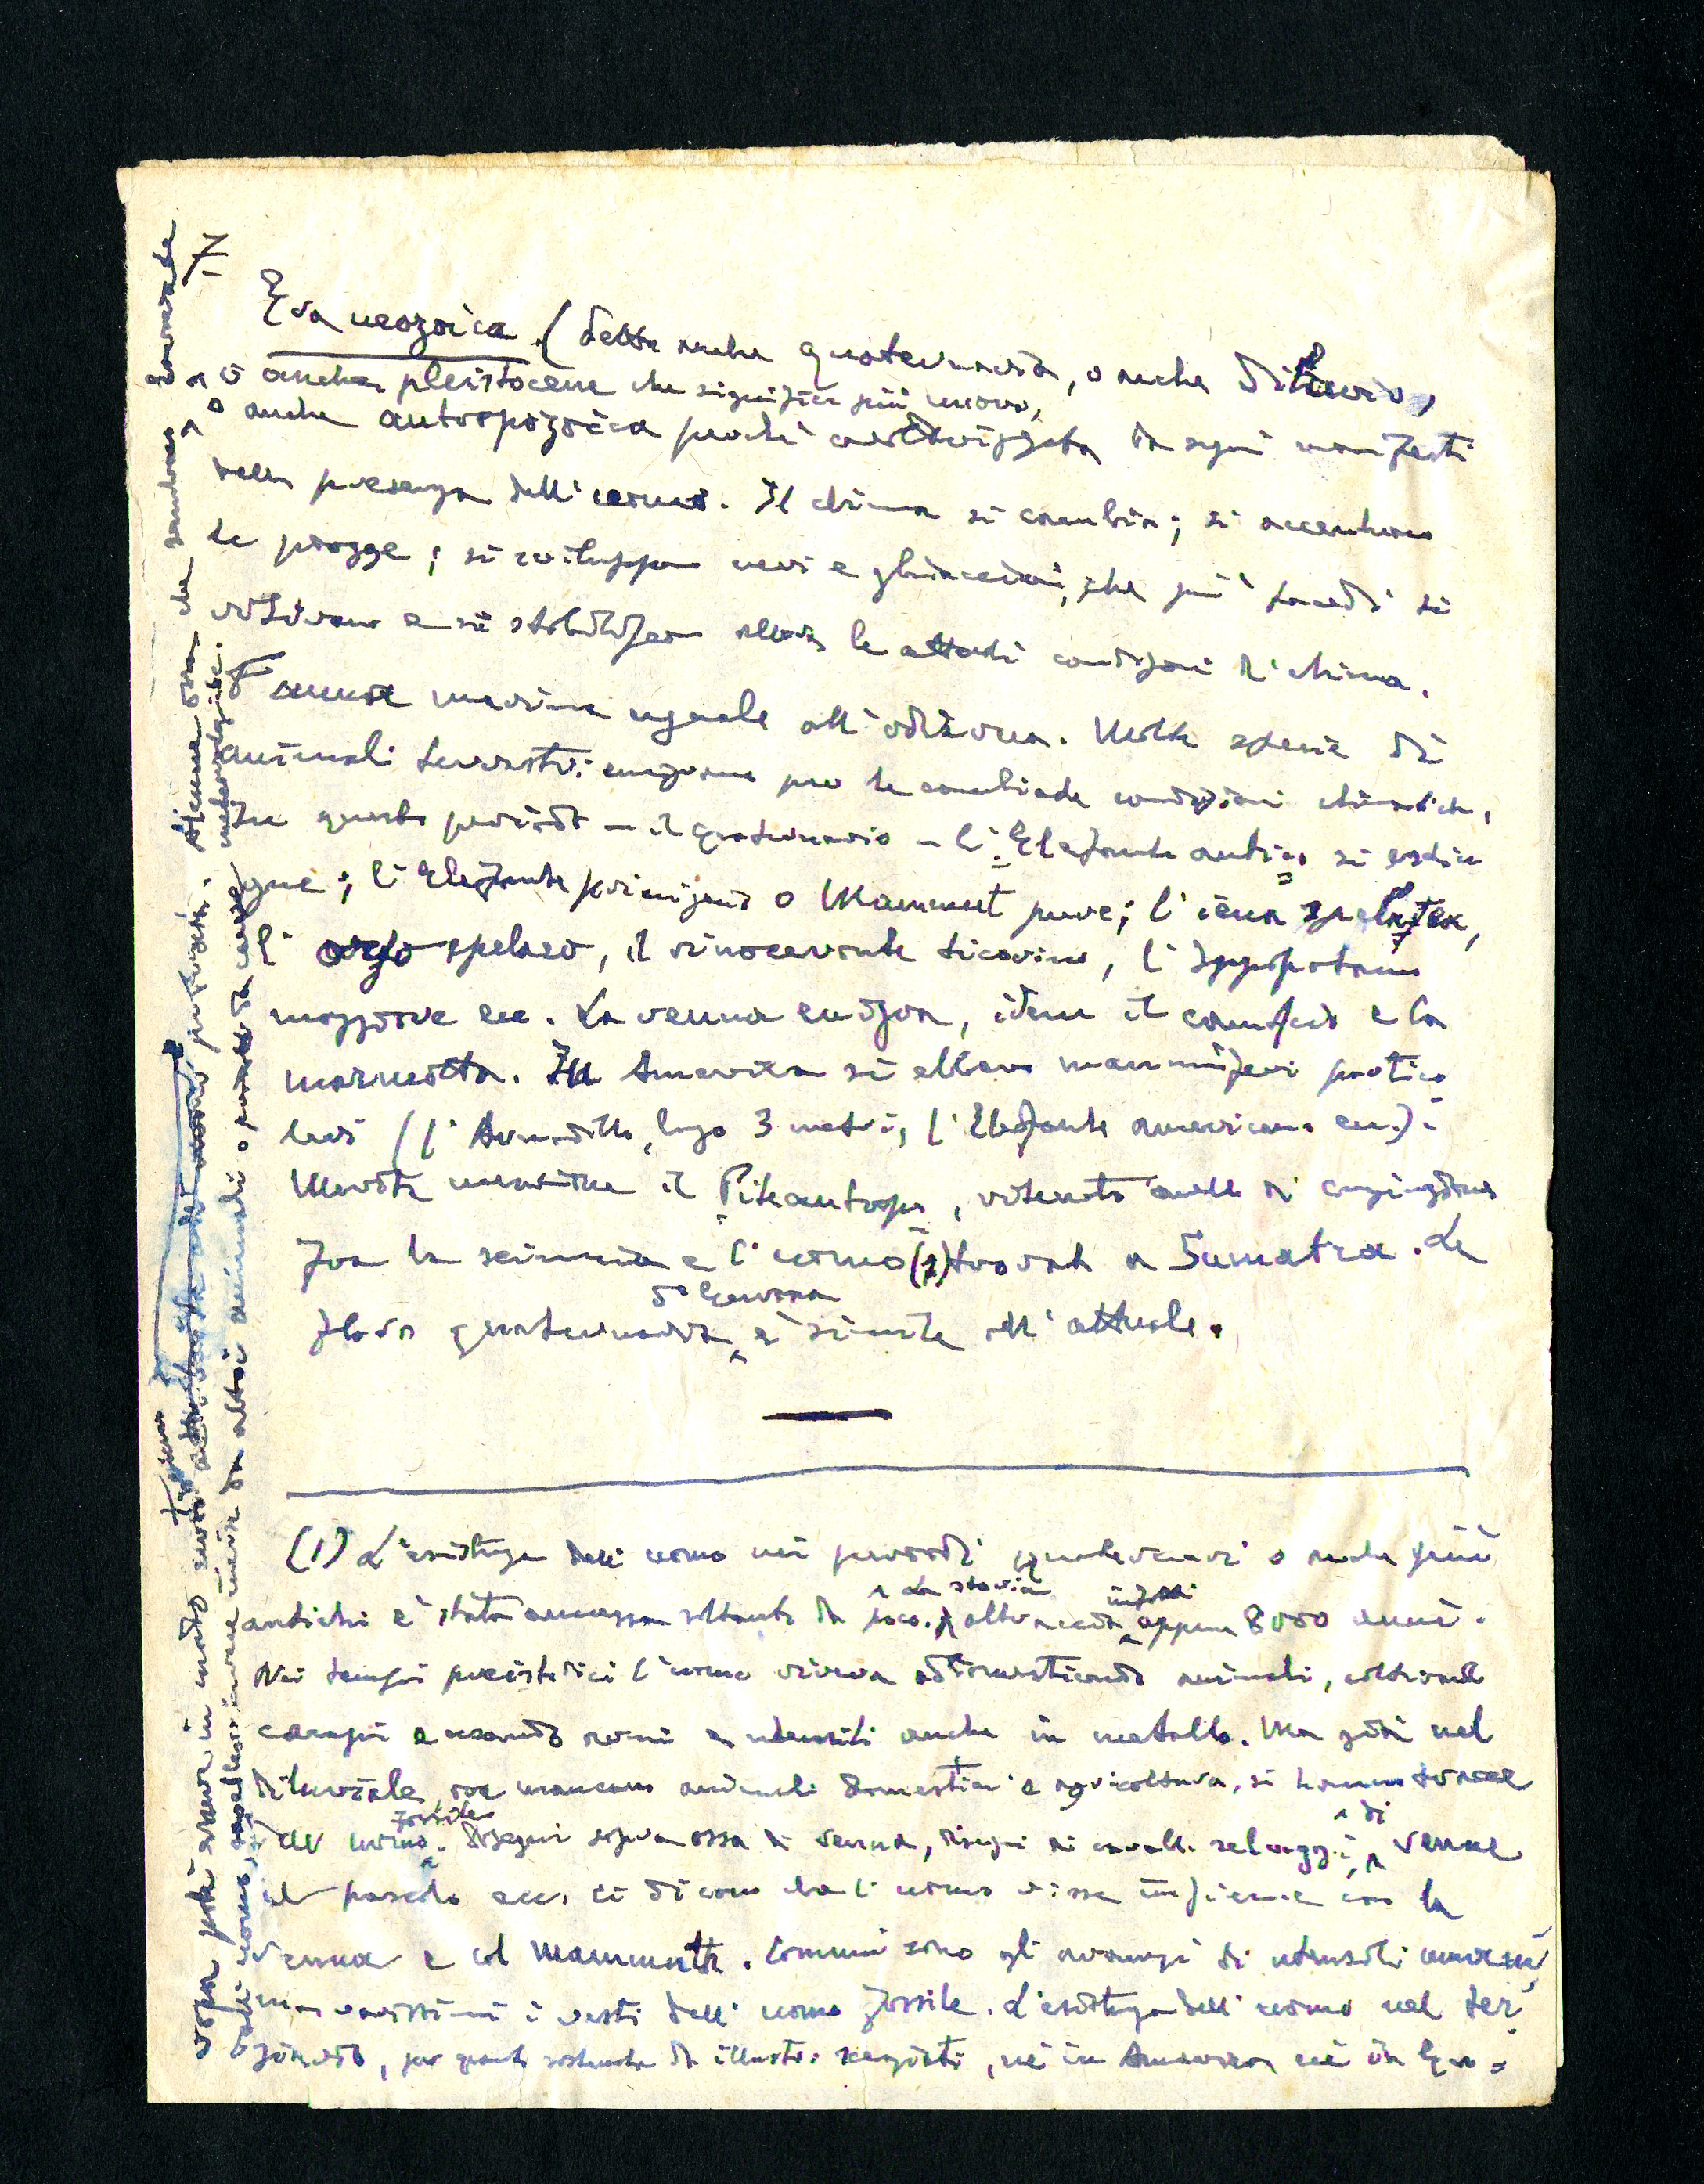 7
Era neozoica. (detta anche quaternaria, o anche diluvio,
o anche pleistocene che significa più nuovo,
o anche antropozoica perché caratterizzata da segni manifesti
della presenza dell'uomo. Il clima si cambia; si accentuano
le piogge; si sviluppano nevi e ghiacciai, che più tardi si
ritirano e si stabilizzano allora le attuali condizioni di clima.
Fauna marina uguale all'odierna. Molte specie di
animali terrestri emigrano per le cambiate condizioni climatiche.
In questo periodo - il quaternario - l'Elefante antico si estin
gue; l'Elefante primigenio o Mammut pure; l'iena spelea,
l'orso speleo, il rinoceronte ticorino, l'Ippopotamo
maggiore ecc. La renna emigra, idem il camoscio e la
marmotta. In America si ebbero mammiferi partico
lari (l'Armadillo, lungo 3 metri, l'Elefante americano ecc.).
Merita menzione il Piteantropo, ritenuto anello di congiunzione
fra la scimmia e l'uomo (1) trovato a Sumatra. La
flora quaternaria d'Europa è simile all'attuale.
(1) L'esistenza dell'uomo nei periodi quaternari o anche più
antichi è stata ammessa soltanto da poco. La storia infatti appena 8000 anni.
Nei tempi preistorici l'uomo viveva addomesticando animali, coltivando
campi e usando armi e utensili anche in metallo. Ma già nel
diluviale, ove mancano animali domestici e agricoltura, si hanno tracce
dell'uomo fossile. Disegni sopra ossa di renna, disegni di cavalli selvaggi, di renne
al pascolo ecc. ci dicono che l'uomo visse insieme con la
renna e col Mammuth. Comuni sono gli avanzi di utensili umani,
ma rarissimi i resti dell'uomo fossile. L'esistenza dell'uomo nel ter
ziario, per quanto sostenuta da illustri scienziati, né in America né in Eu=
ropa poté essere in modo sicuro provata. Alcune ossa che sembrano lavorate
dall'uomo, sarebbero invece incise da altri animali o prodotte da cause meteorologiche.